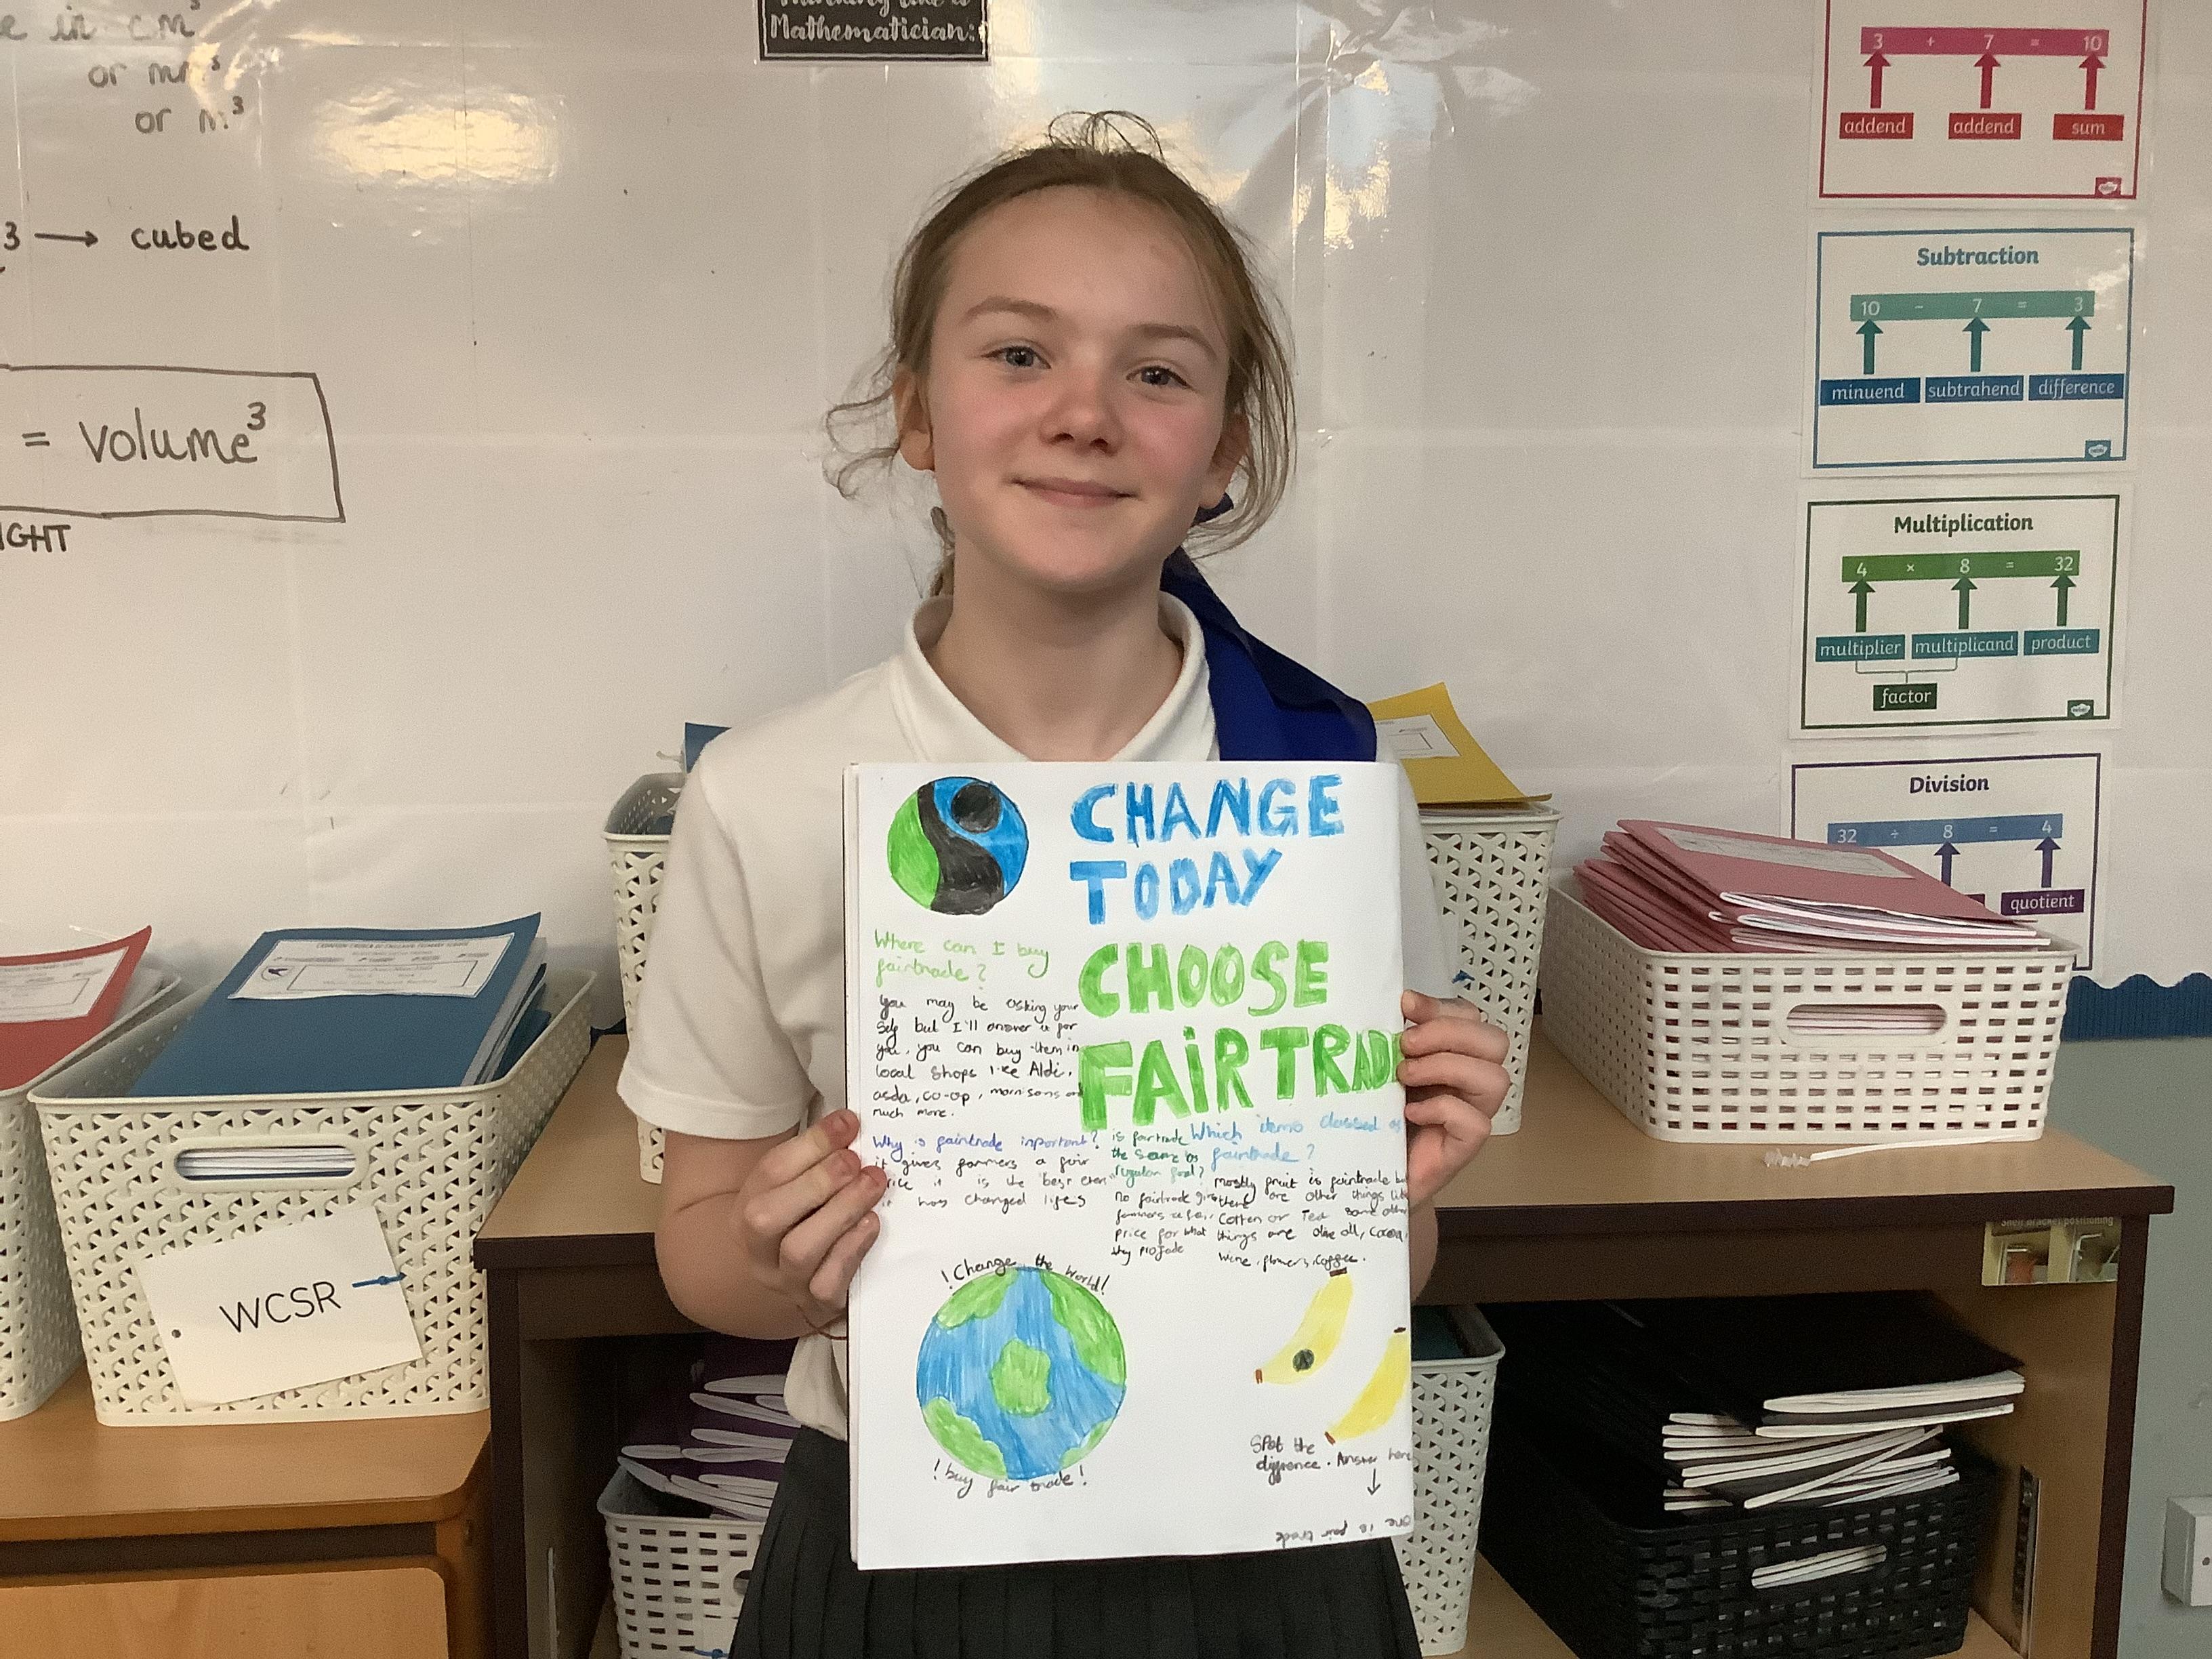 Mathematician:
in cm³
or mm³
or m³
3 → cubed
= volume³
IGHT
3 + 7 = 10
addend addend sum
Subtraction
10 - 7 = 3
minuend subtrahend difference
Multiplication
4 × 8 = 32
multiplier multiplicand product
factor
Division
32 ÷ 8 = 4
quotient
WCSR
CHANGE
TODAY
CHOOSE
FAIRTRADE
Where can I buy
fairtrade?
You may be asking your
self but I'll answer it for
you, you can buy them in
local shops like Aldi,
asda, co-op, morrisons and
much more.
Why is fairtrade important?
it gives farmers a fair
price it is the best ever
it has changed lifes
is fairtrade
the same as
regular
no fairtrade gives
farmers a fair
price for what
they
Which items classed as
fairtrade?
mostly fruit is fairtrade but
there are other things like
Cotten or Tea some other
things are olive oil, Cocoa,
wine, flowers, coffee.
!Change the world!
!buy fair trade!
Spot the
Answer here
↓
one is fair trade